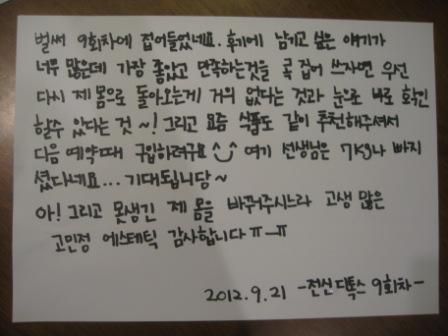 벌써 9회차에 접어들었네요. 후기에 남기고 싶은 얘기가
너무 많은데 가장 좋았고 만족하는것을 콕 집어 쓰자면 우선
다시 제 몸으로 돌아오는게 거의 없다는 것과 눈으로 바로 확인
할수 있다는 것~! 그리고 요즘 식품도 같이 추천해주셔서
다음 예약때 구입하려구요 ^_^ 여기 선생님은 7kg나 빠지
셨다네요... 기대됩니당~
아! 그리고 못생긴 제 몸을 바꿔주시느라 고생 많은
고민정 에스테틱 감사합니다 ㅠ_ㅠ
2012.9.21 -전신디톡스 9회차-